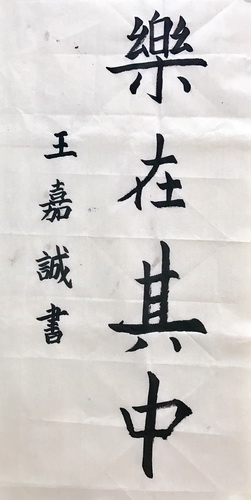 樂在其中
王嘉誠書